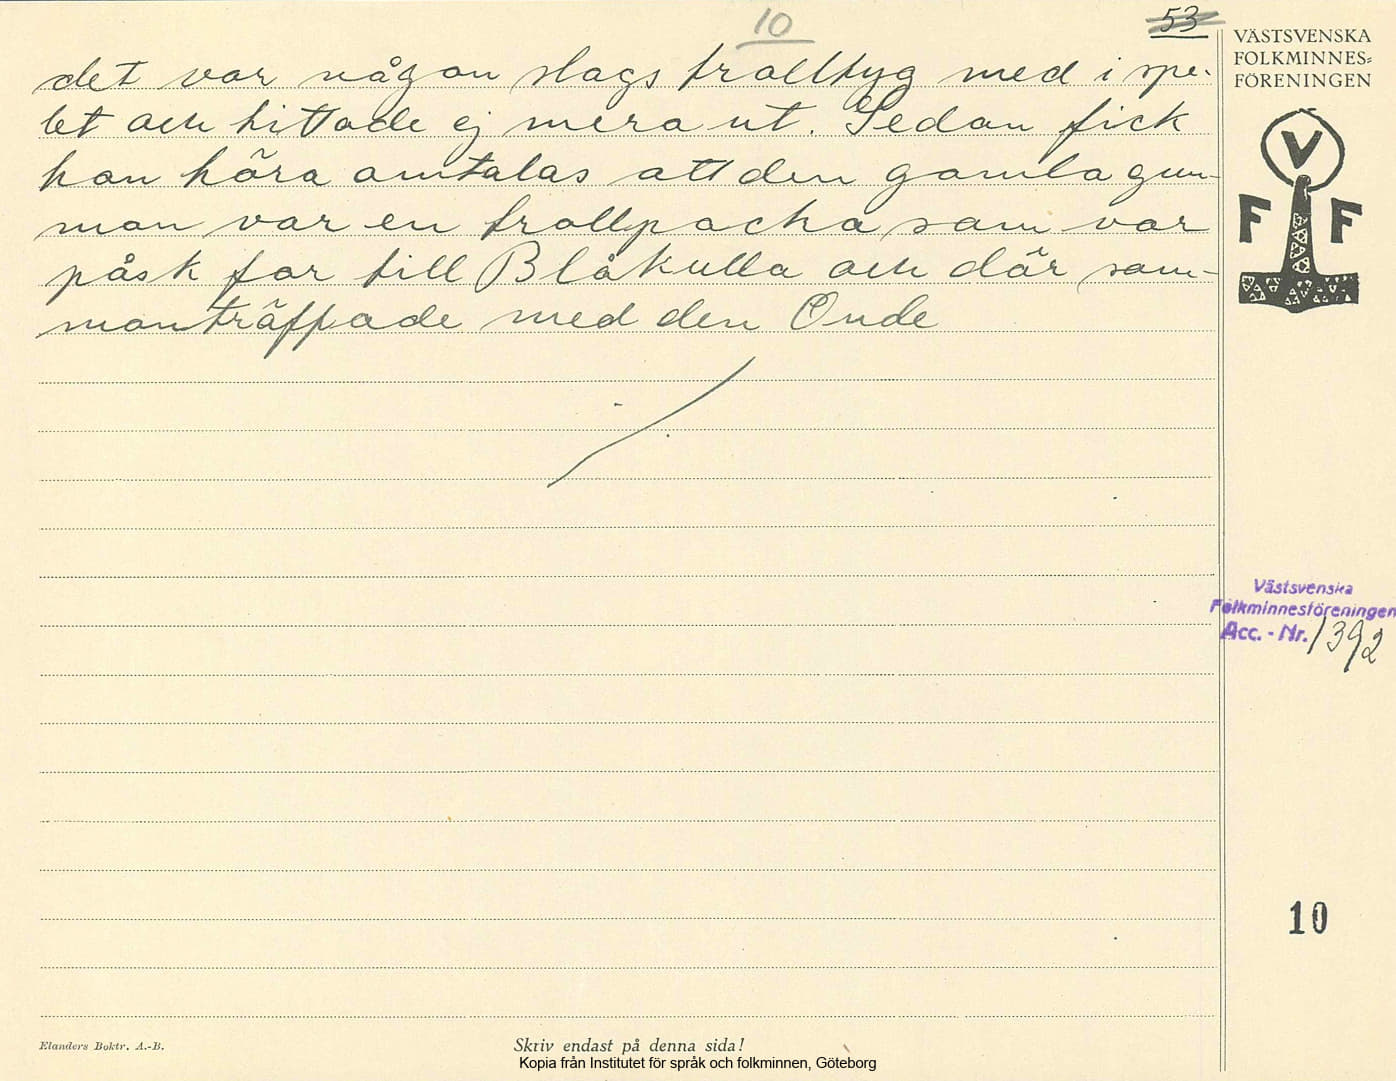 10
53
det var någon slags trolltyg med i spe-
let och hittade ej mera ut. Sedan fick
han höra omtalas att den gamla gum-
man var en trollpacka som var
påsk far till Blåkulla och där sam-
manträffade med den Onde
VÄSTSVENSKA
FOLKMINNES=
FÖRENINGEN
V
F F
Västsvenska
Folkminnesföreningen
Acc. - Nr. 1392
10
Elanders Boktr. A.-B.
Skriv endast på denna sida!
Kopia från Institutet för språk och folkminnen, Göteborg